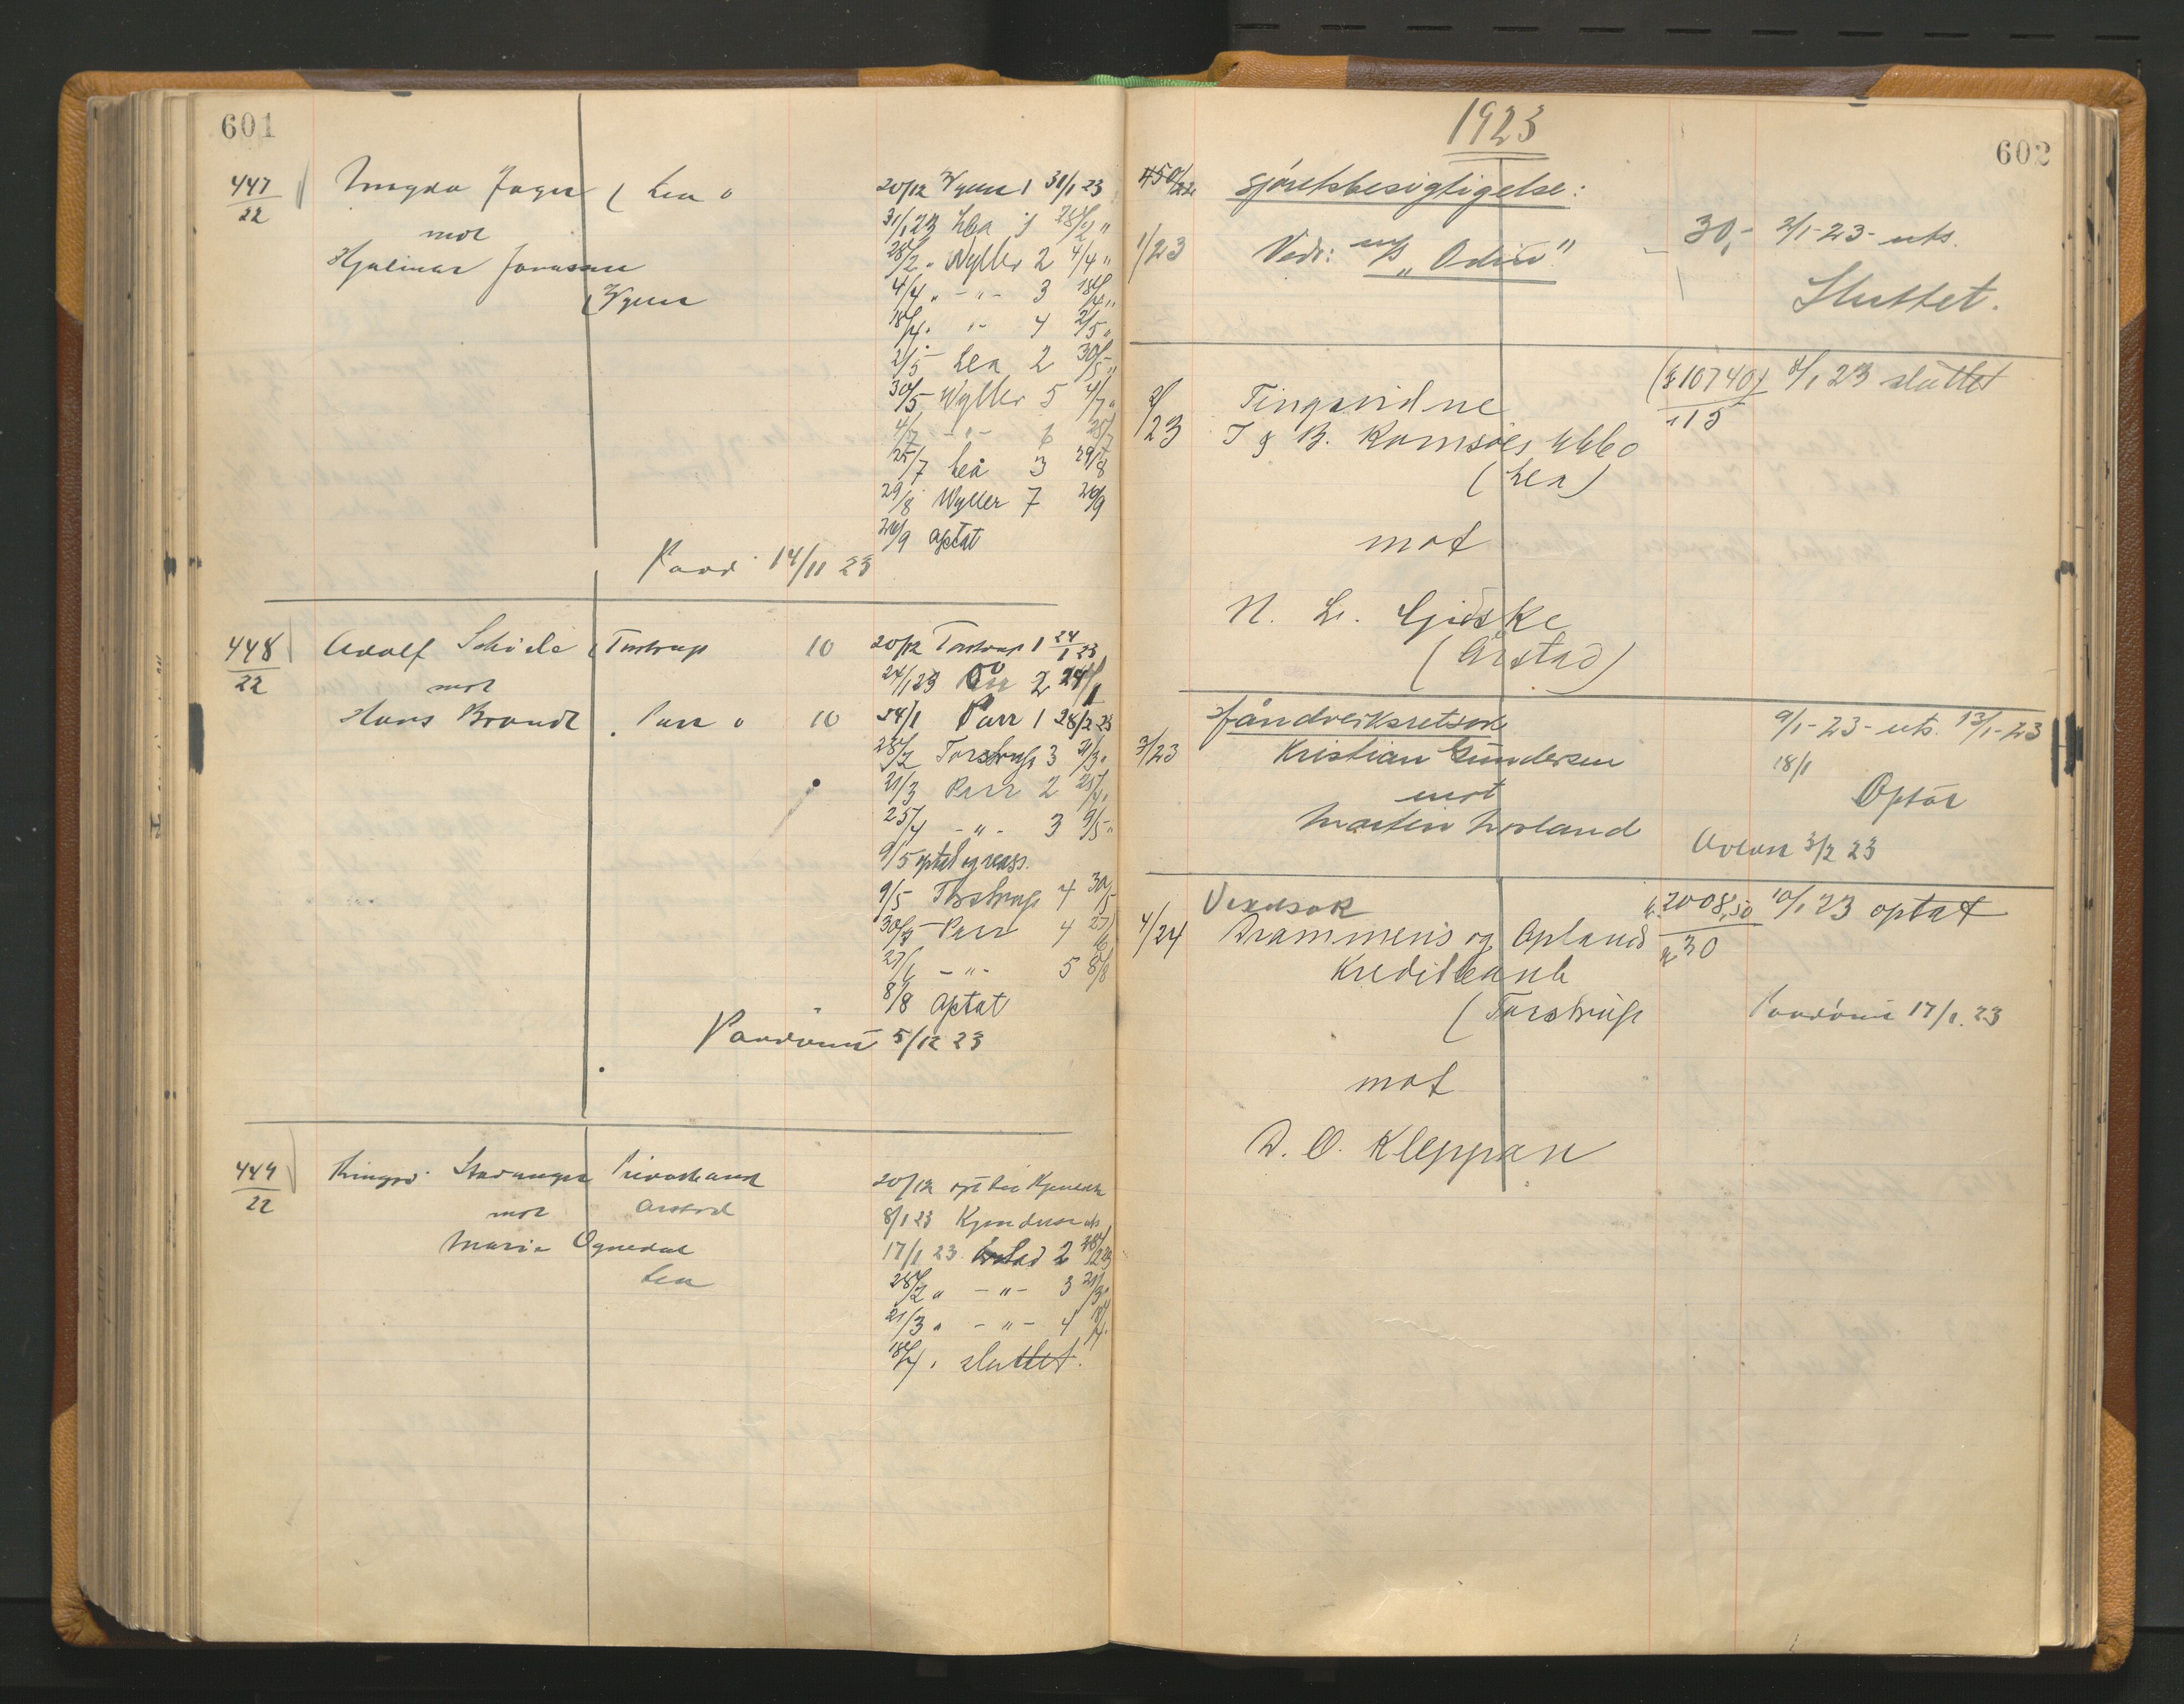 601
447/22 Magda Jager ( Lea
mot
Hjalmar Jonassen
( Wyller
20/12 Wyller 1 31/1 23
31/1 23 Lea 1 28/2 "
28/2 " Wyller 2 4/4 "
4/4 " - " - 3 18/4 "
18/4 " " - 4 2/5 "
2/5 - Lea 2 30/5 "
30/5 Wyller 5 4/7 "
4/7 - " - 6 25/7
25/7 Lea 3 29/8
29/8 Wyller 7 26/9
26/9 optat
14/11 23
448/22 Adolf Schiele ( Torstrup 10
mot
Hans Brandt Parr 10
20/12 Torstrup 1 24/1 23
24/1 23 2 24/1
24/1 Parr 1 28/2 23
28/2 Torstrup 3 21/3 "
21/3 Parr 2 25/4 "
25/4 - " - 3 9/5 "
9/5 optat og reass.
9/5 Torstrup 4 30/5
30/5 Parr 4 27/6
27/6 - " - 5 8/8
8/8 optat
5/12 23
449/22 Stavanger Privatbank
mot Årstad
Maria Ognedal
Lea
20/12
8/1 23 uts
17/1 23 Årstad 2 28/2 23
28/2 " - " - 3 21/3 "
21/3 " - " - 4 18/4 "
18/4 " sluttet.
602
1923
450/22 Sjøretsbesigtigelse:
1/23 Vedr: m/k "Odin" 30,- 2/1-23- uts.
Sluttet.
2/23 Tingsvidne (k 10740) 1/23 sluttet
T & B. Ramsøes Ebbo 15
(Lea)
mot
N. L. Gjeske
(Årstad)
Håndverksretsak 9/1-23- uts. 13/1-23
3/23 Kristian Gundersen 18/1
mot Optat
Martin
3/2 23
Vexelsak k. 2008,50 10/1 23 optat
4/24 Drammens og Oplands k 30
Kreditbank
( Torstrup 17/1. 23
mot
D. O. Kleppan